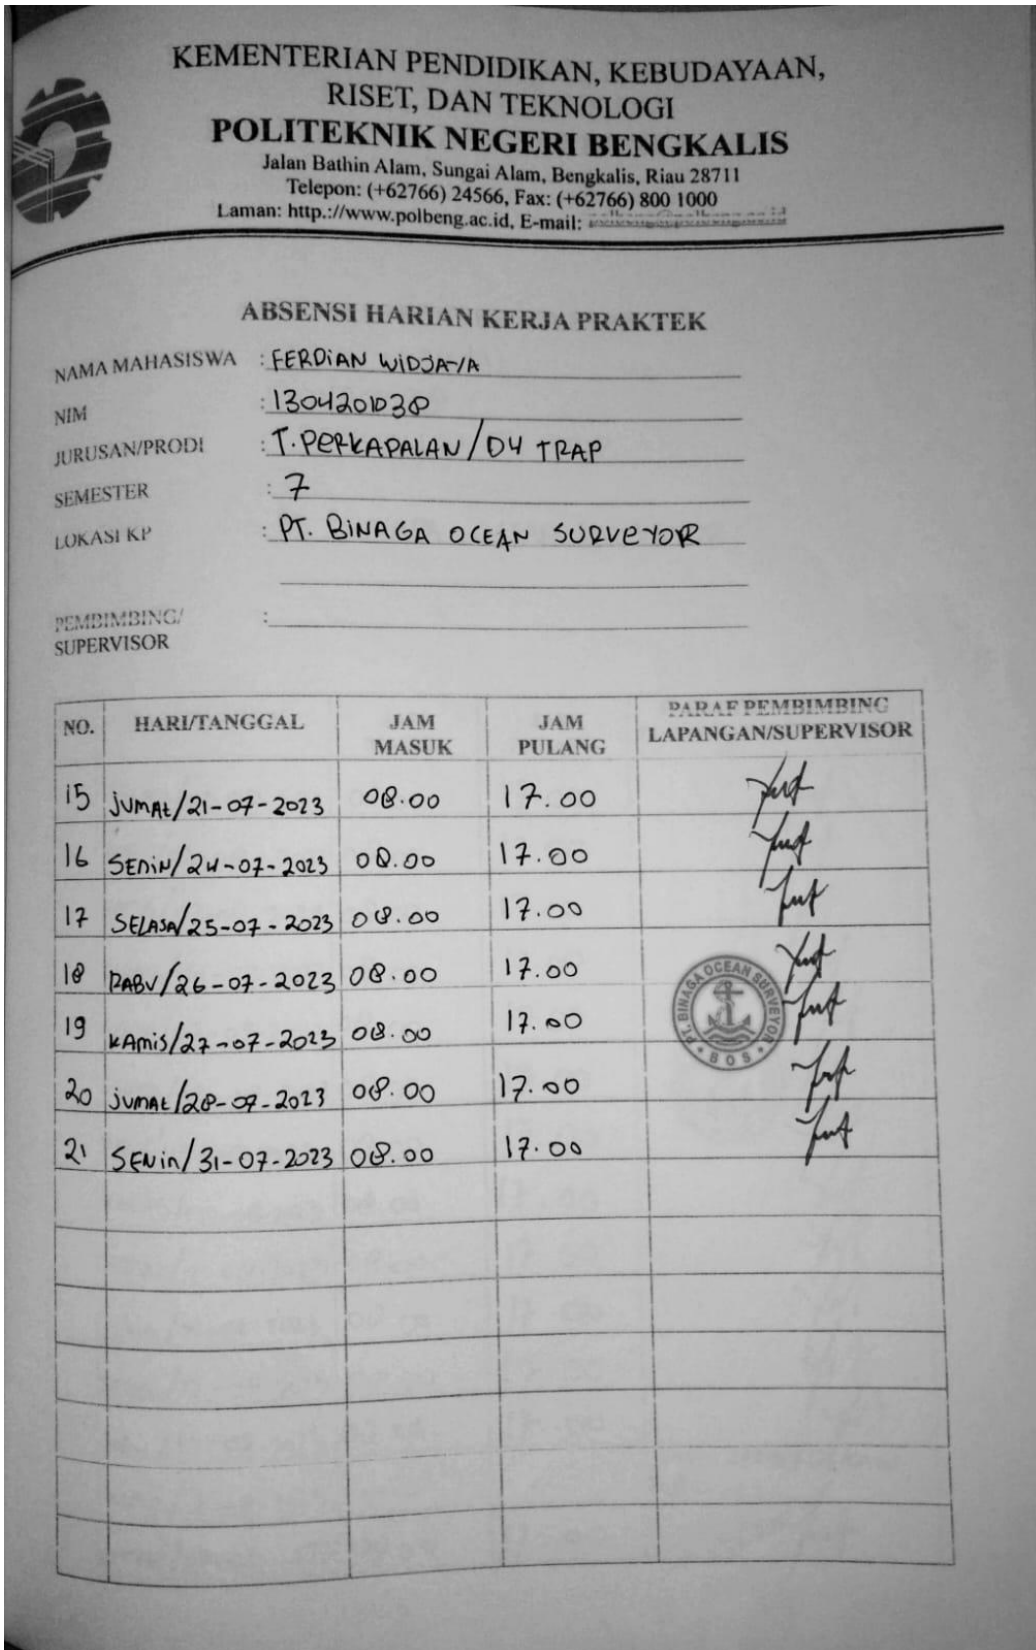 KEMENTERIAN PENDIDIKAN, KEBUDAYAAN,
RISET, DAN TEKNOLOGI
POLITEKNIK NEGERI BENGKALIS
Jalan Bathin Alam, Sungai Alam, Bengkalis, Riau 28711
Telepon: (+62766) 24566, Fax: (+62766) 800 1000
Laman: http.://www.polbeng.ac.id, E-mail:
ABSENSI HARIAN KERJA PRAKTEK
NAMA MAHASISWA : FERDiAN WIDJAYA
NIM : 1304201038
JURUSAN/PRODI : T.PERKAPALAN/D4 TRAP
SEMESTER : 7
LOKASI KP : PT. BiNAGA OCEAN SURVEYOR
PEMBIMBING/ :
SUPERVISOR
NO. HARI/TANGGAL JAM MASUK JAM PULANG PARAF PEMBIMBING LAPANGAN/SUPERVISOR
15 JUMAt/21-07-2023 08.00 17.00
16 SENiN/24-07-2023 08.00 17.00
17 SELASA/25-07-2023 08.00 17.00
18 RABU/26-07-2023 08.00 17.00
19 KAMiS/27-07-2023 08.00 17.00
20 JUMAt/28-07-2023 08.00 17.00
21 SENin/31-07-2023 08.00 17.00
PT. BINAGA OCEAN SURVEYOR
BOS